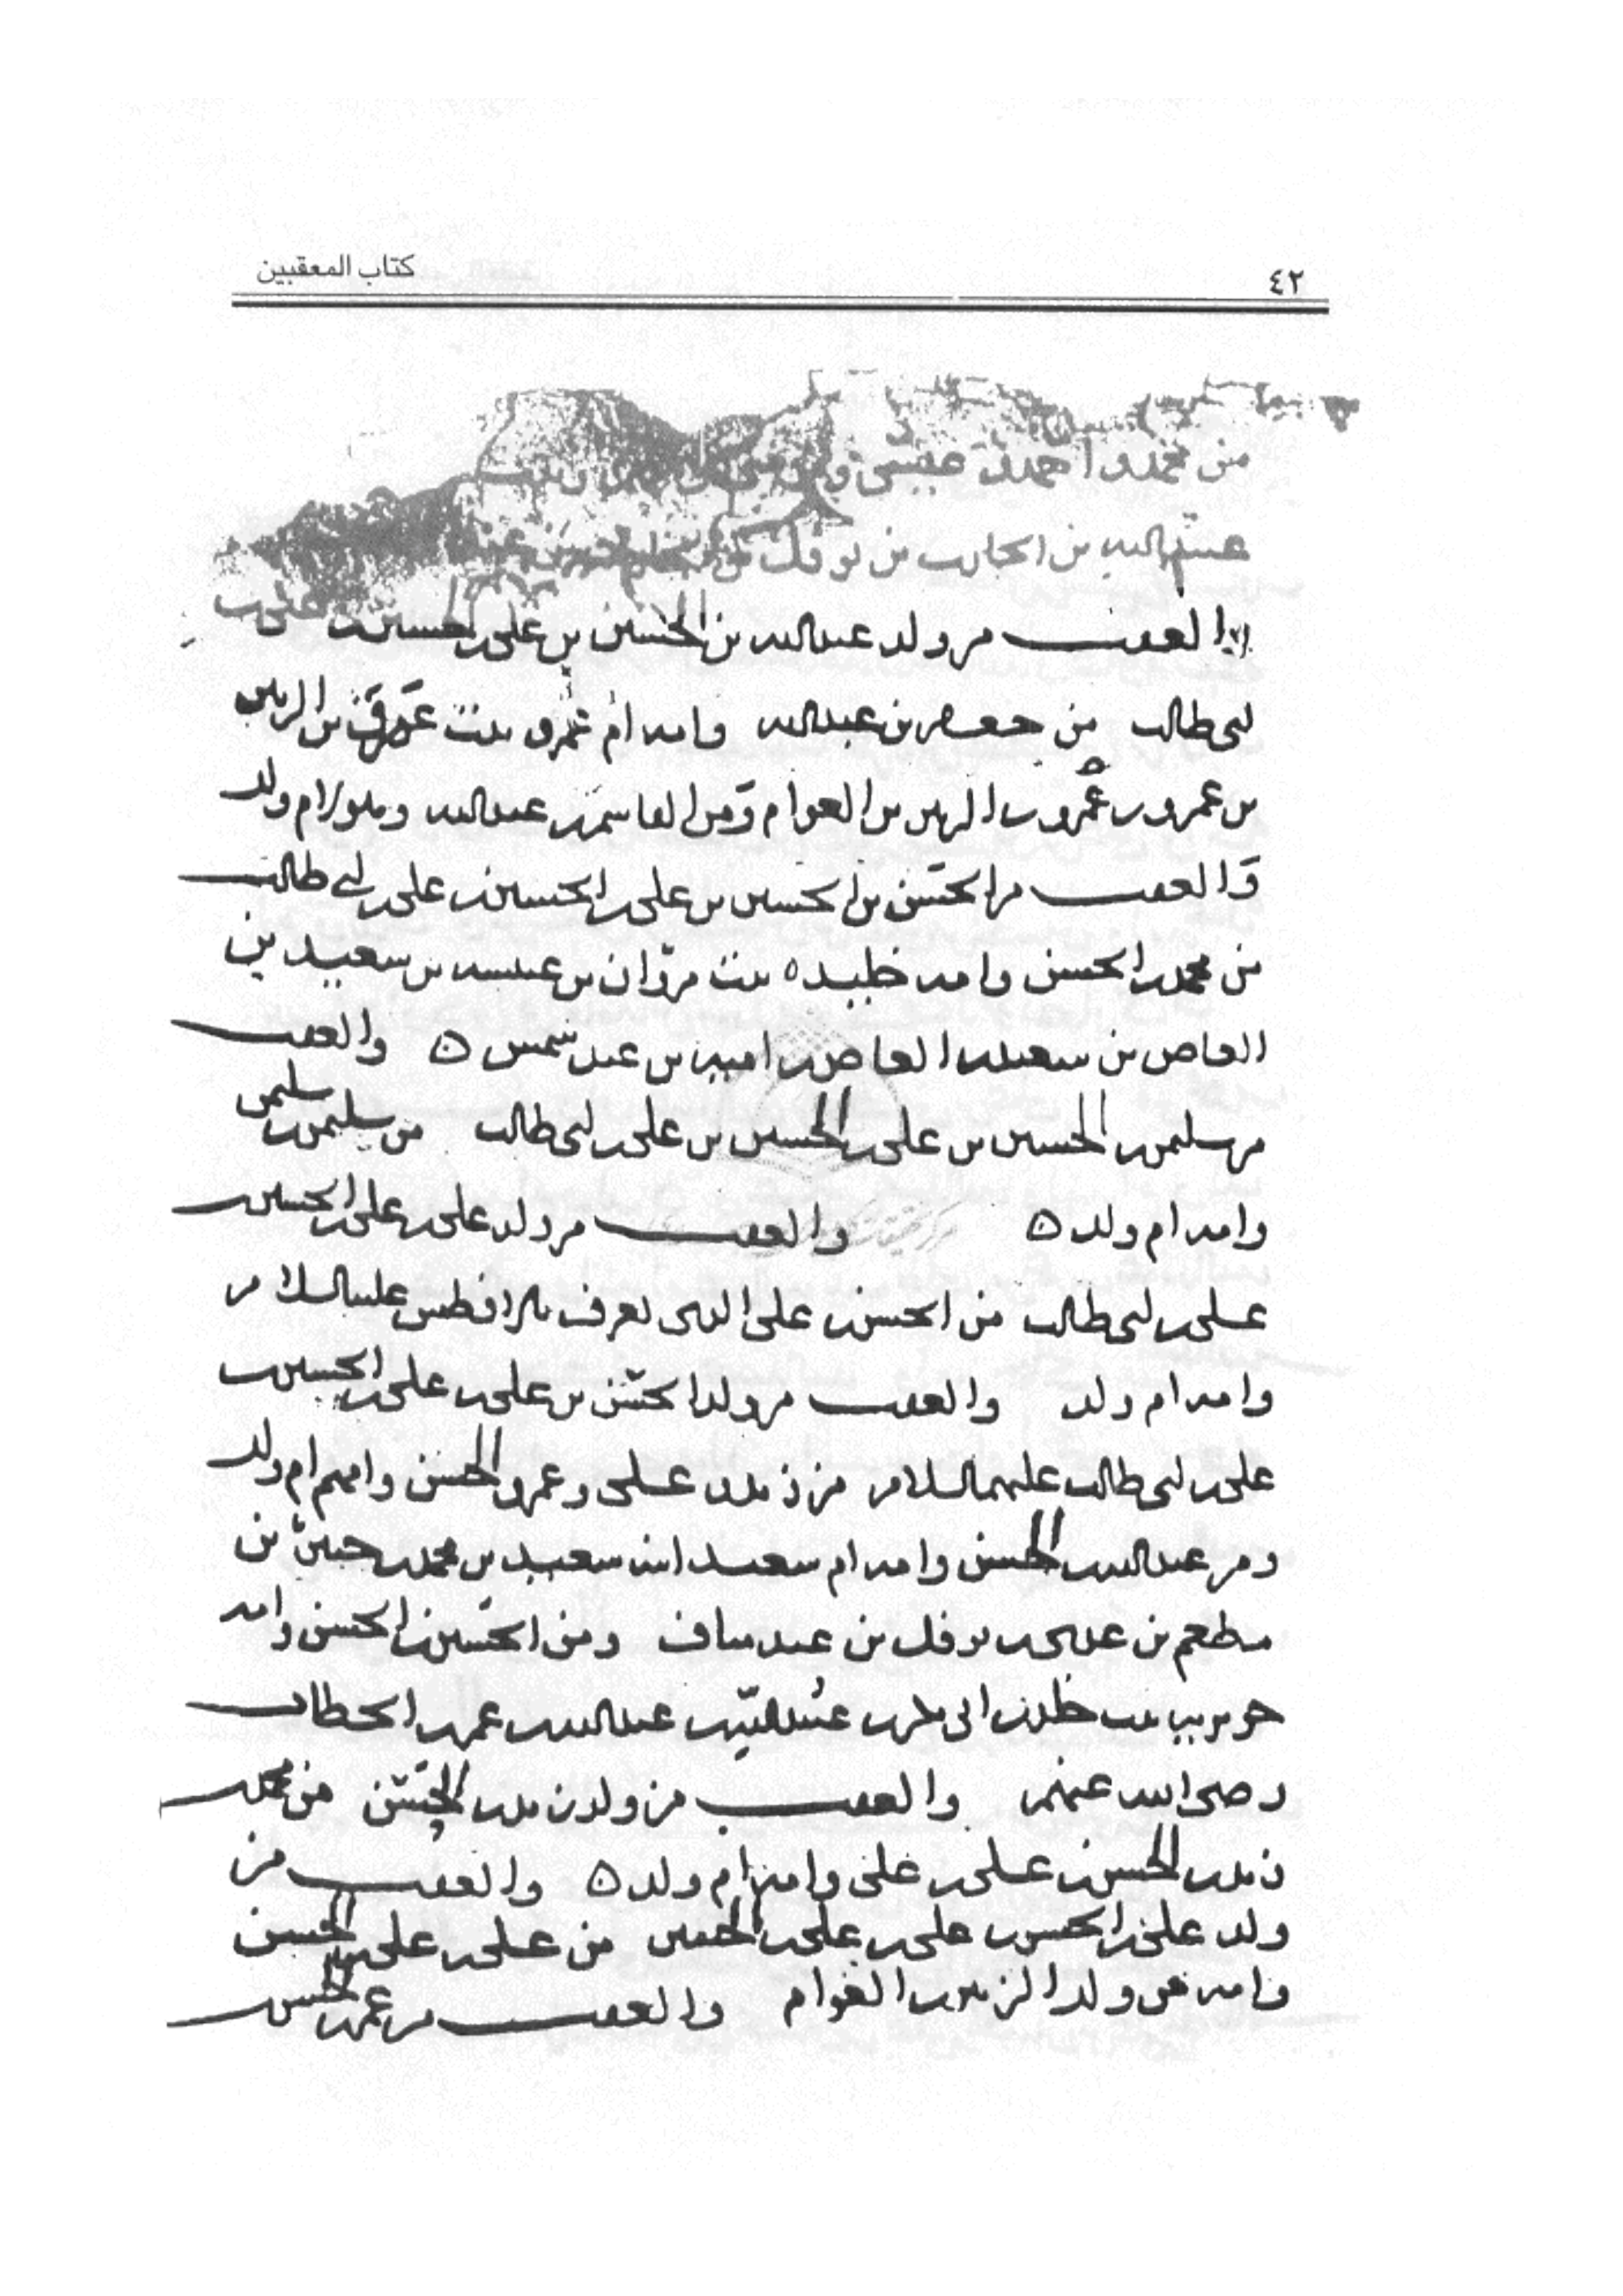 ٤٢
كتاب المعقبين
من محمد و احمد عيسى
عبد الله بن الحارث بن نوفل
العقب من ولد عبد الله بن الحسين بن على بن الحسين بن على بن
ابى طالب من جعفر بن عبد الله وامه ام عمرو بنت عمرو بن الزبير
بن عمرو بن عمرو بن الزبير بن العوام ومن القاسم بن عبد الله وهو لام ولد
والعقب من الحسن بن الحسين بن على بن الحسين بن على بن ابى طالب
من محمد بن الحسن وامه خليده بنت مروان بن عنبسه بن سعيد بن
العاص بن سعيد بن العاص بن اميه بن عبد شمس ٥ والعقب
من سليمن بن الحسين بن على بن الحسين بن على بن ابى طالب من سليمن بن سليمن
وامه ام ولد ٥ والعقب من ولد على بن على بن الحسين بن
على بن ابى طالب من الحسن بن على الذى يعرف بالافطس عليه السلام
وامه ام ولد والعقب من ولد الحسن بن على بن على بن الحسين بن
على بن ابى طالب عليهما السلام من زيد بن على وعمر بن الحسن وامهم ام ولد
ومن عبد الله بن الحسن وامه ام سعيد ابنه سعيد بن محمد بن جبير بن
مطعم بن عدى بن نوفل بن عبد مناف ومن الحسين بن الحسن وامه
جويريه بنت خلد بن ابى بكر بن عبيد الله بن عبد الله بن عمر بن الخطاب
رضى الله عنهم والعقب من ولد زيد بن الحسن من محمد بن
زيد بن الحسن بن على بن على وامه ام ولد ٥ والعقب من
ولد على بن الحسن بن على بن على بن الحسين من على بن على بن الحسن
وامه من ولد الزبير بن العوام والعقب من عمر بن الحسن بن